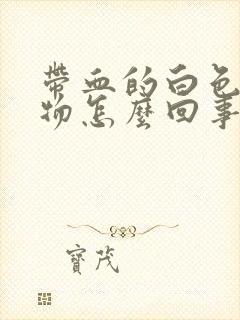 帶血的白色
物怎麼回事
寶茂